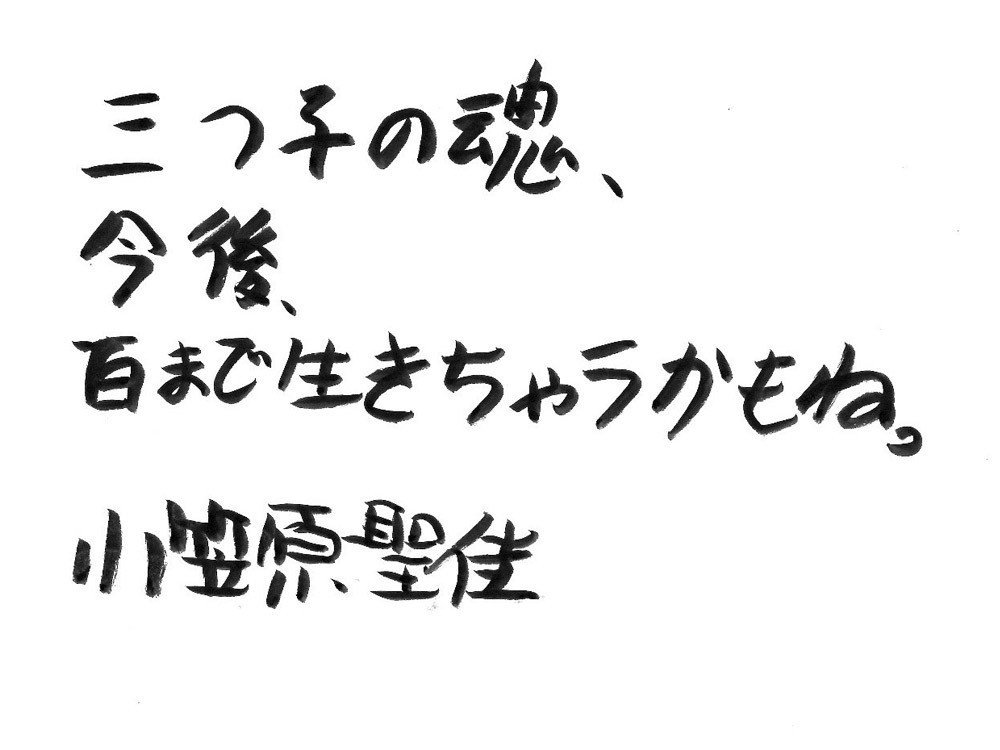 三つ子の魂、
今後、
百まで生きちゃうかもね。
小笠原聖佳